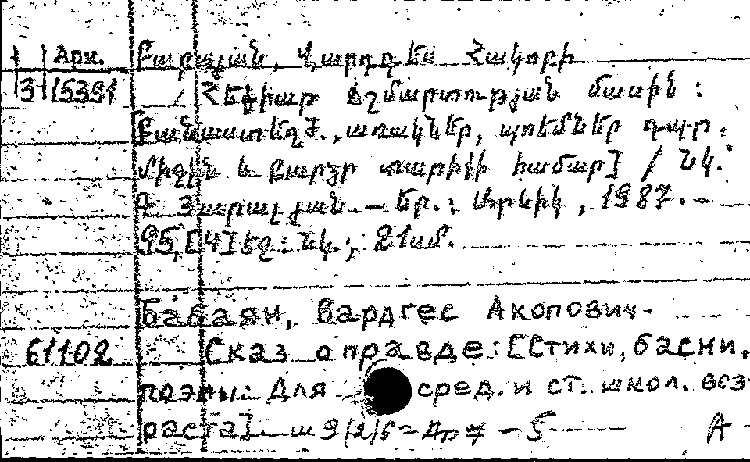 Арм. Բաբայան, Վարդգես Հակոբի
3 15391 Հեքիաթ ճշմարտության մասին :
[Բանաստեղծ., առակներ, պոեմներ դպր.
միջին և բարձր տարիքի համար] / Նկ.
— Եր. : Արևիկ, 1987. —
95, [4] էջ : նկ. ; 21 սմ.
Бабаян, Вардгес Акопович.
61102 Сказ о правде: [Стихи, басни,
поэмы. Для сред. и ст. школ. воз-
раста]. — 5 А